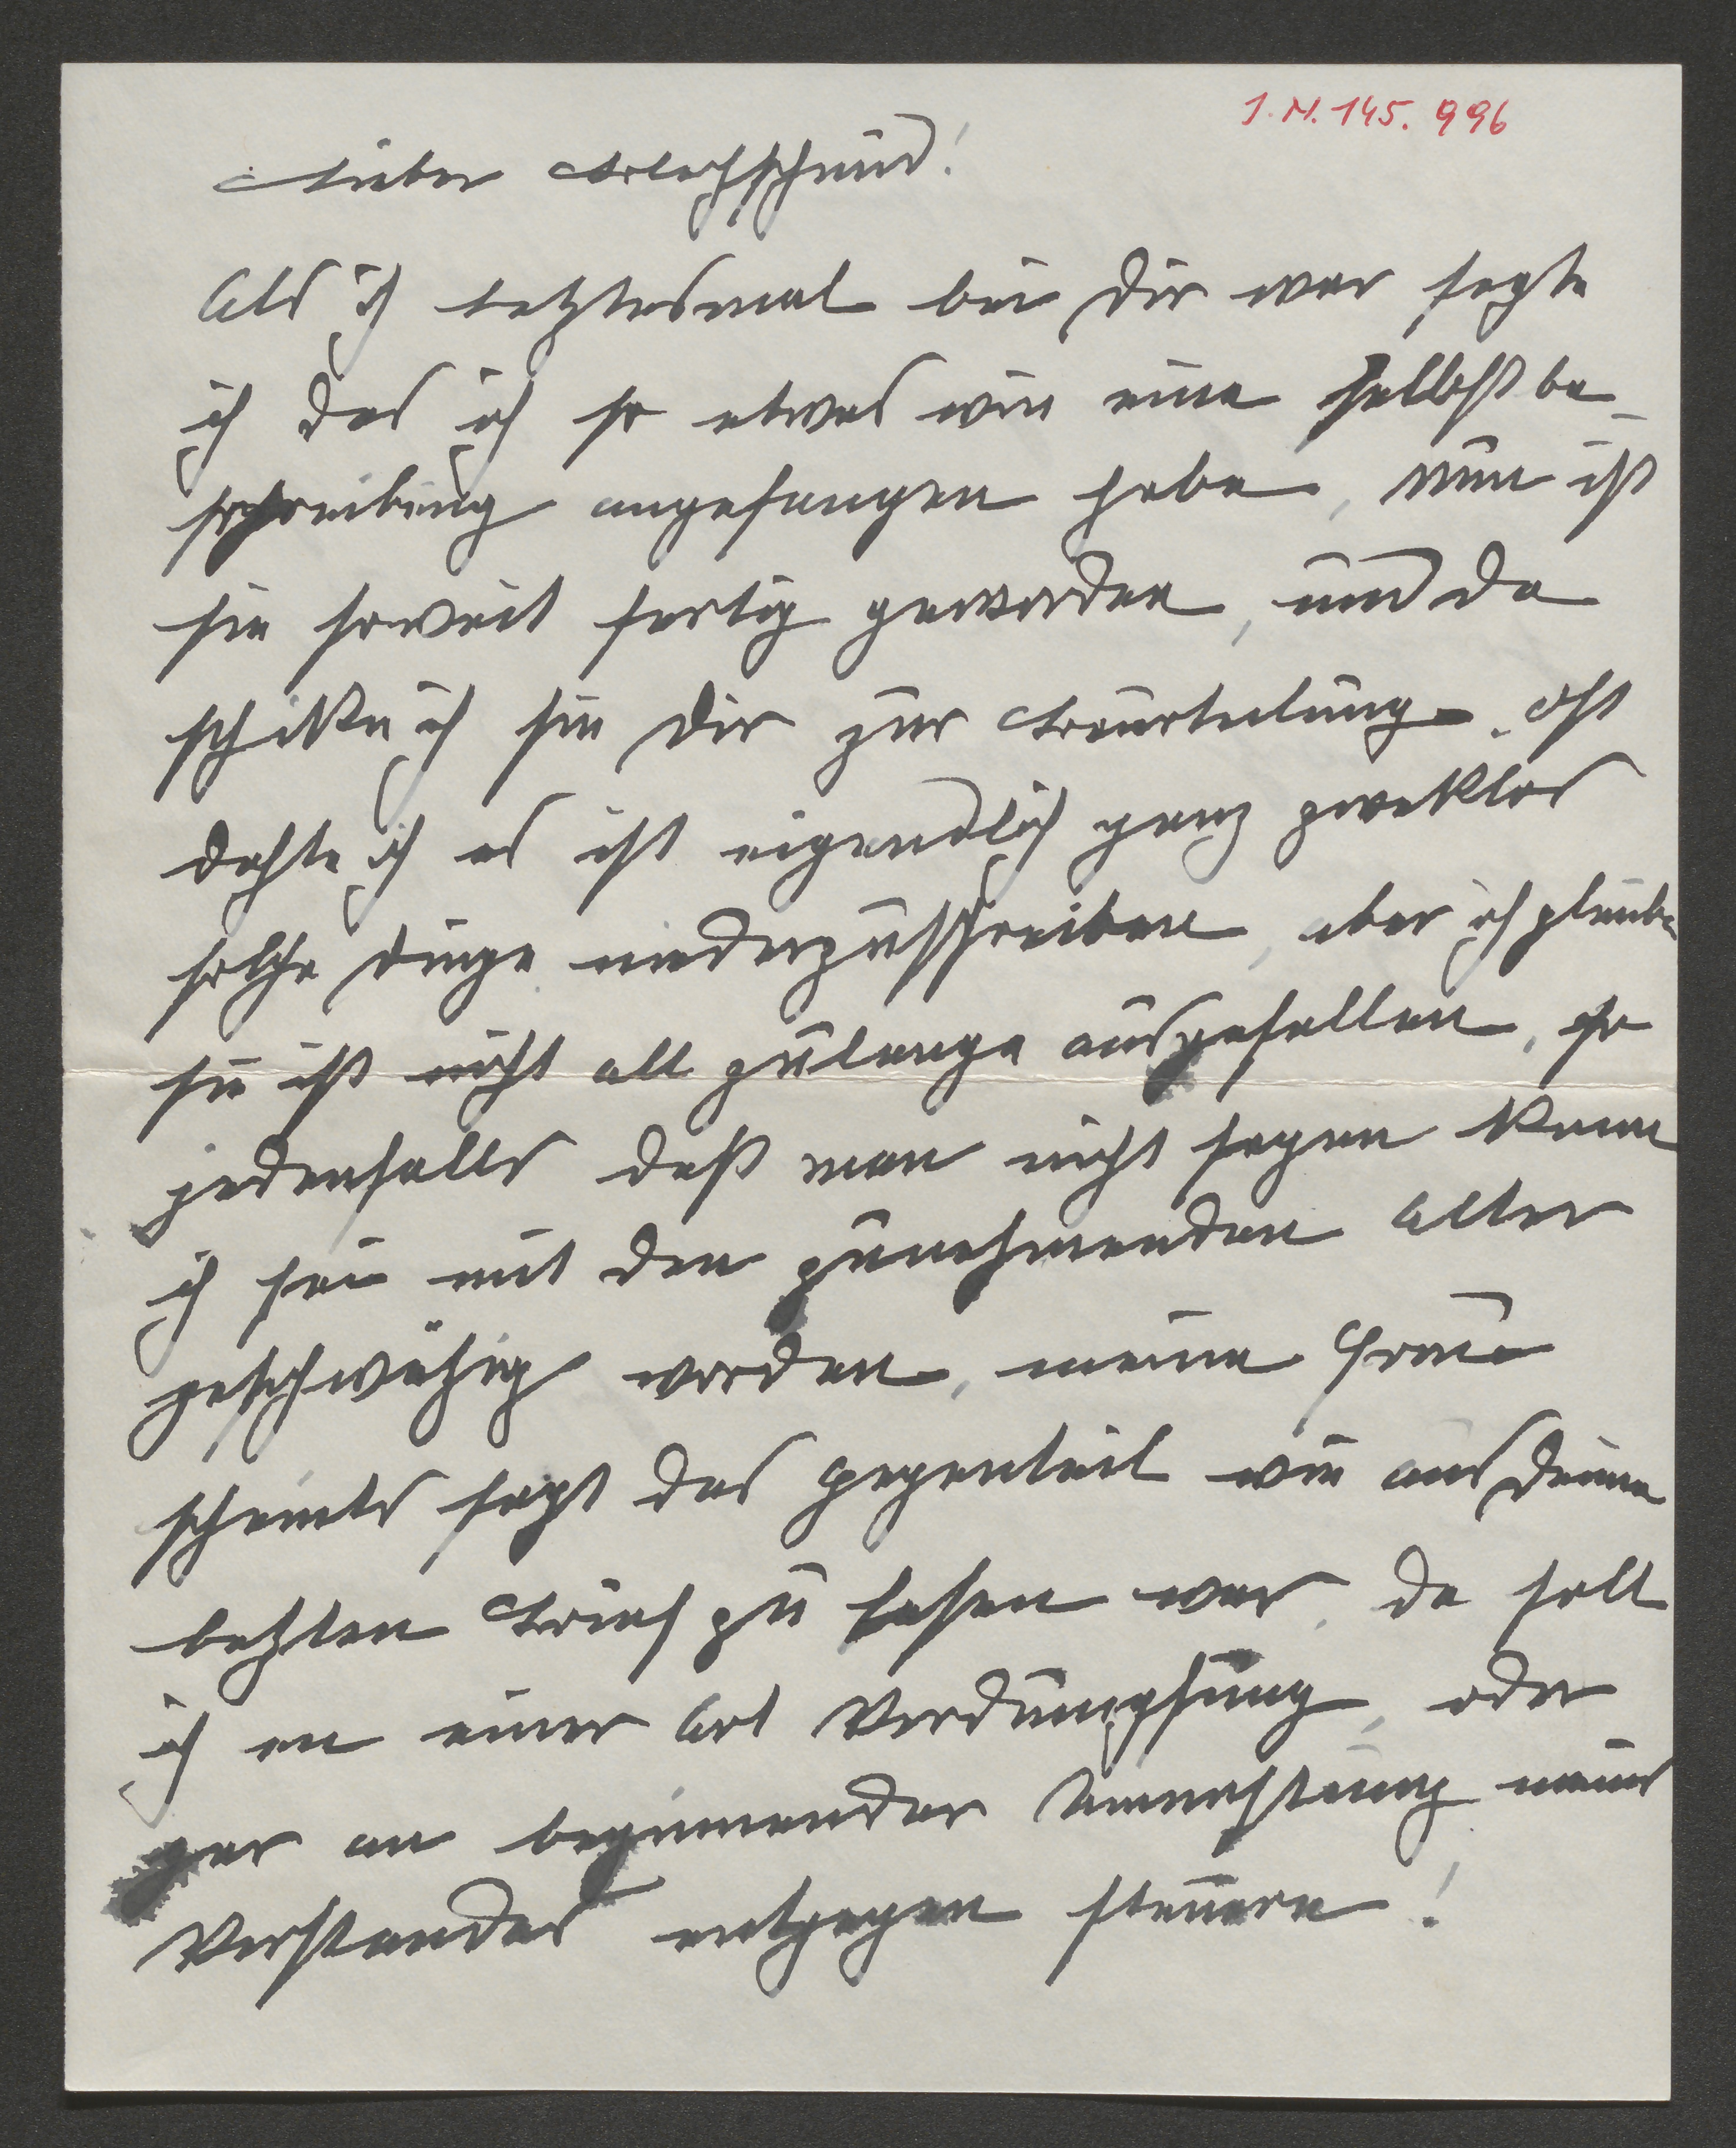 I. N. 145.996
Lieber Blechschmid!
Als ich letztesmal bei Dir war sagte
ich das ich so etwas wie eine Selbstbe-
schreibung angefangen habe, nun ist
sie soweit fertig geworden, und da
schike ich sie Dir zur Beurteilung. Oft
dachte ich es ist eigendlich ganz zweklos
solche Dinge niederzuschreiben, aber ich glaube
sie ist nicht all zulange ausgefallen, so
jedenfalls daß man nicht sagen kann
ich sei mit den zunehmenden Alter
geschwäzig worden, meine Frau
scheints sagt das Gegenteil wie aus Deinen
letzten Brief zu lesen war, da soll
ich an einer Art Verdumpfung, oder
gar an beginnender Umnachtung meines
Verstandes entgegen steuern!